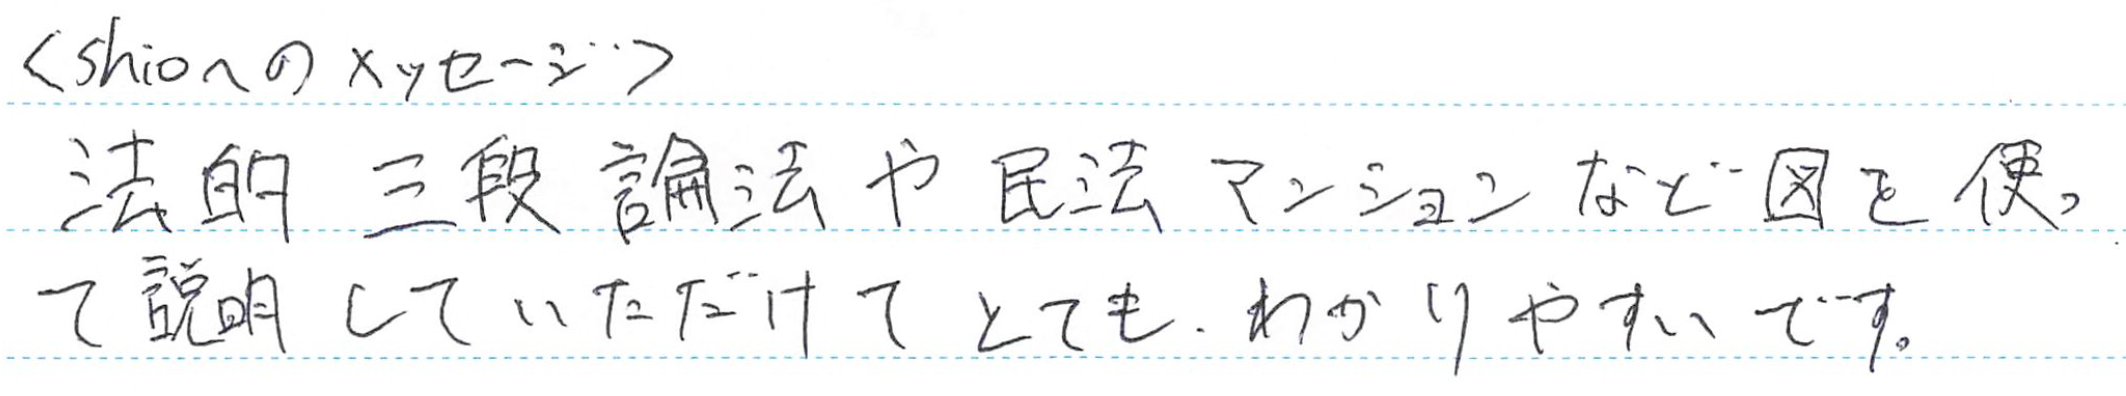 <shioへのメッセージ>
法的三段論法や民法マンションなど図を使っ
て説明していただけてとても、わかりやすいです。